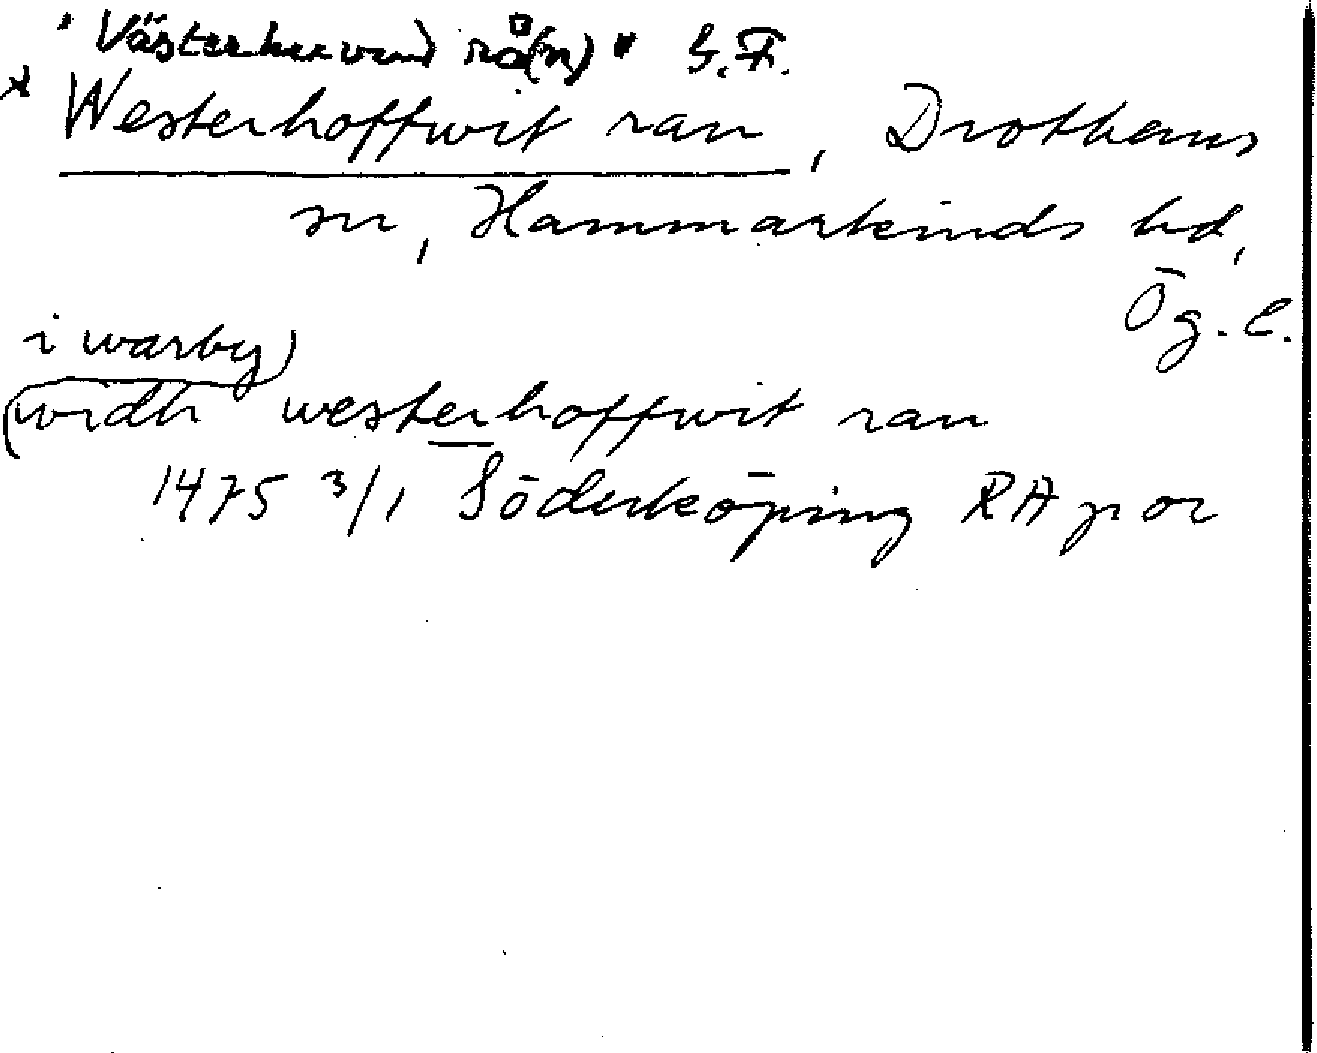 "Västerhuvud rå(n)" G.F.
x Westerhoffwit ran, Drothems
sn, Hammarkinds hd,
Ög. l.
i warby)
(widh westerhoffwit ran
1475 3/1 Söderköping RAp or